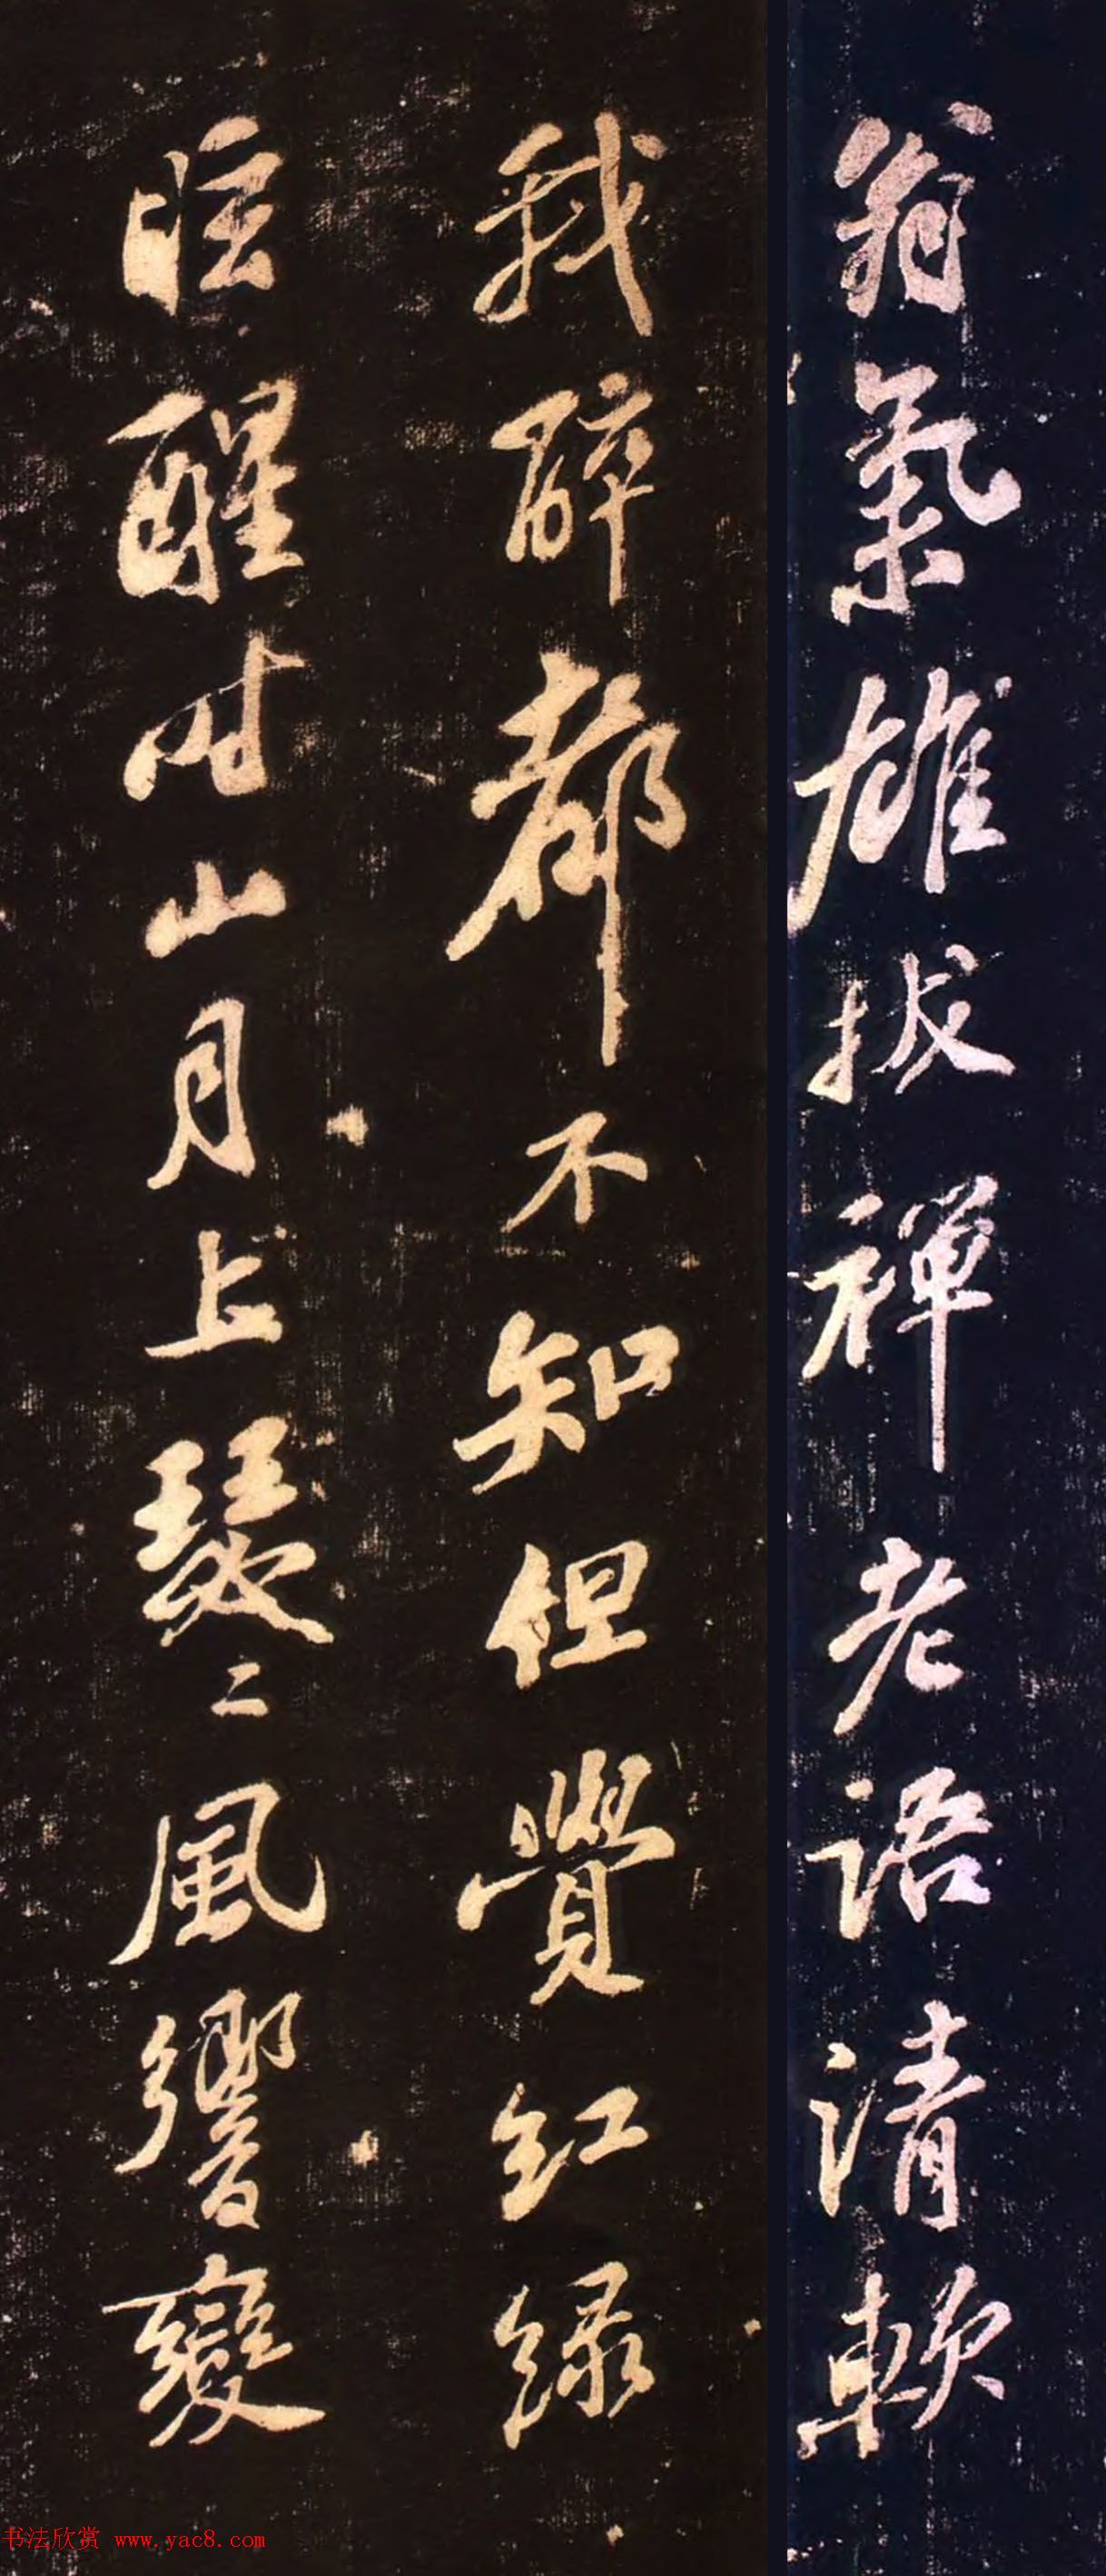 翁氣雄拔禅老語清軟
我醉都不知但覺紅綠
眩醒时山月上瑟二風響變
书法欣赏 www.yac8.com